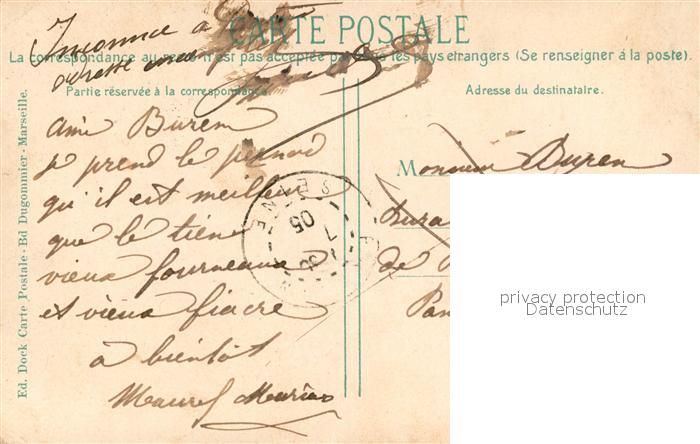 CARTE POSTALE
Inconnu à
adresse
La correspondance au recto n'est pas acceptée par tous les pays étrangers (Se renseigner à la poste).
Partie réservée à la correspondance.
Adresse du destinataire.
ami Buren
je prend le pernod
qu'il est meilleur
que le tien
vieux fourneaux
et vieux fiacre
à bientôt
Maurel
Monsieur Duren
Bura
de
Pan
05
7
30
privacy protection
Datenschutz
Ed. Dock Carte Postale - Bd Dugommier - Marseille.